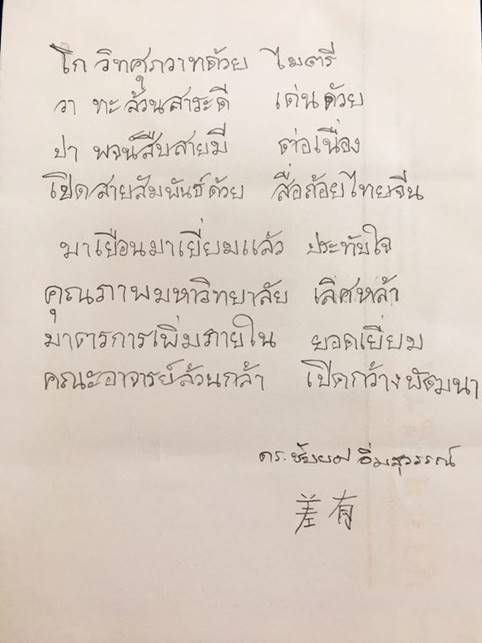 โก วิทศุภวาทด้วย ไมตรี
วา ทะล้วนสาระดี เด่นด้วย
ปา พจน์สืบสายมี ต่อเนื่อง
เปิดสายสัมพันธ์ด้วย สื่อถ้อยไทยจีน
มาเยือนมาเยี่ยมแล้ว ประทับใจ
คุณภาพมหาวิทยาลัย เลิศหล้า
มาตรการเพิ่มภายใน ยอดเยี่ยม
คณะอาจารย์ล้วนกล้า เปิดกว้างพัฒนา
ดร. อิ่มสุวรรณ์
差 有